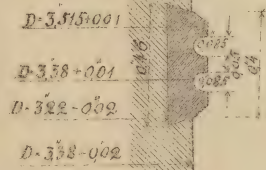 D=3,515+0,01
D=3,38+0,01
D=3,22-0,02
D=3,38-0,02
0,46
0,085
0,085
0,4